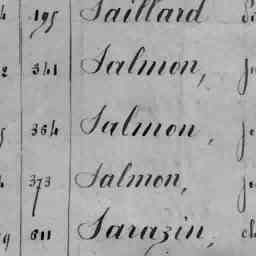 4 195 Saillard
2 341 Salmon,
5 364 Salmon,
4 373 Salmon,
9 611 Sarazin,